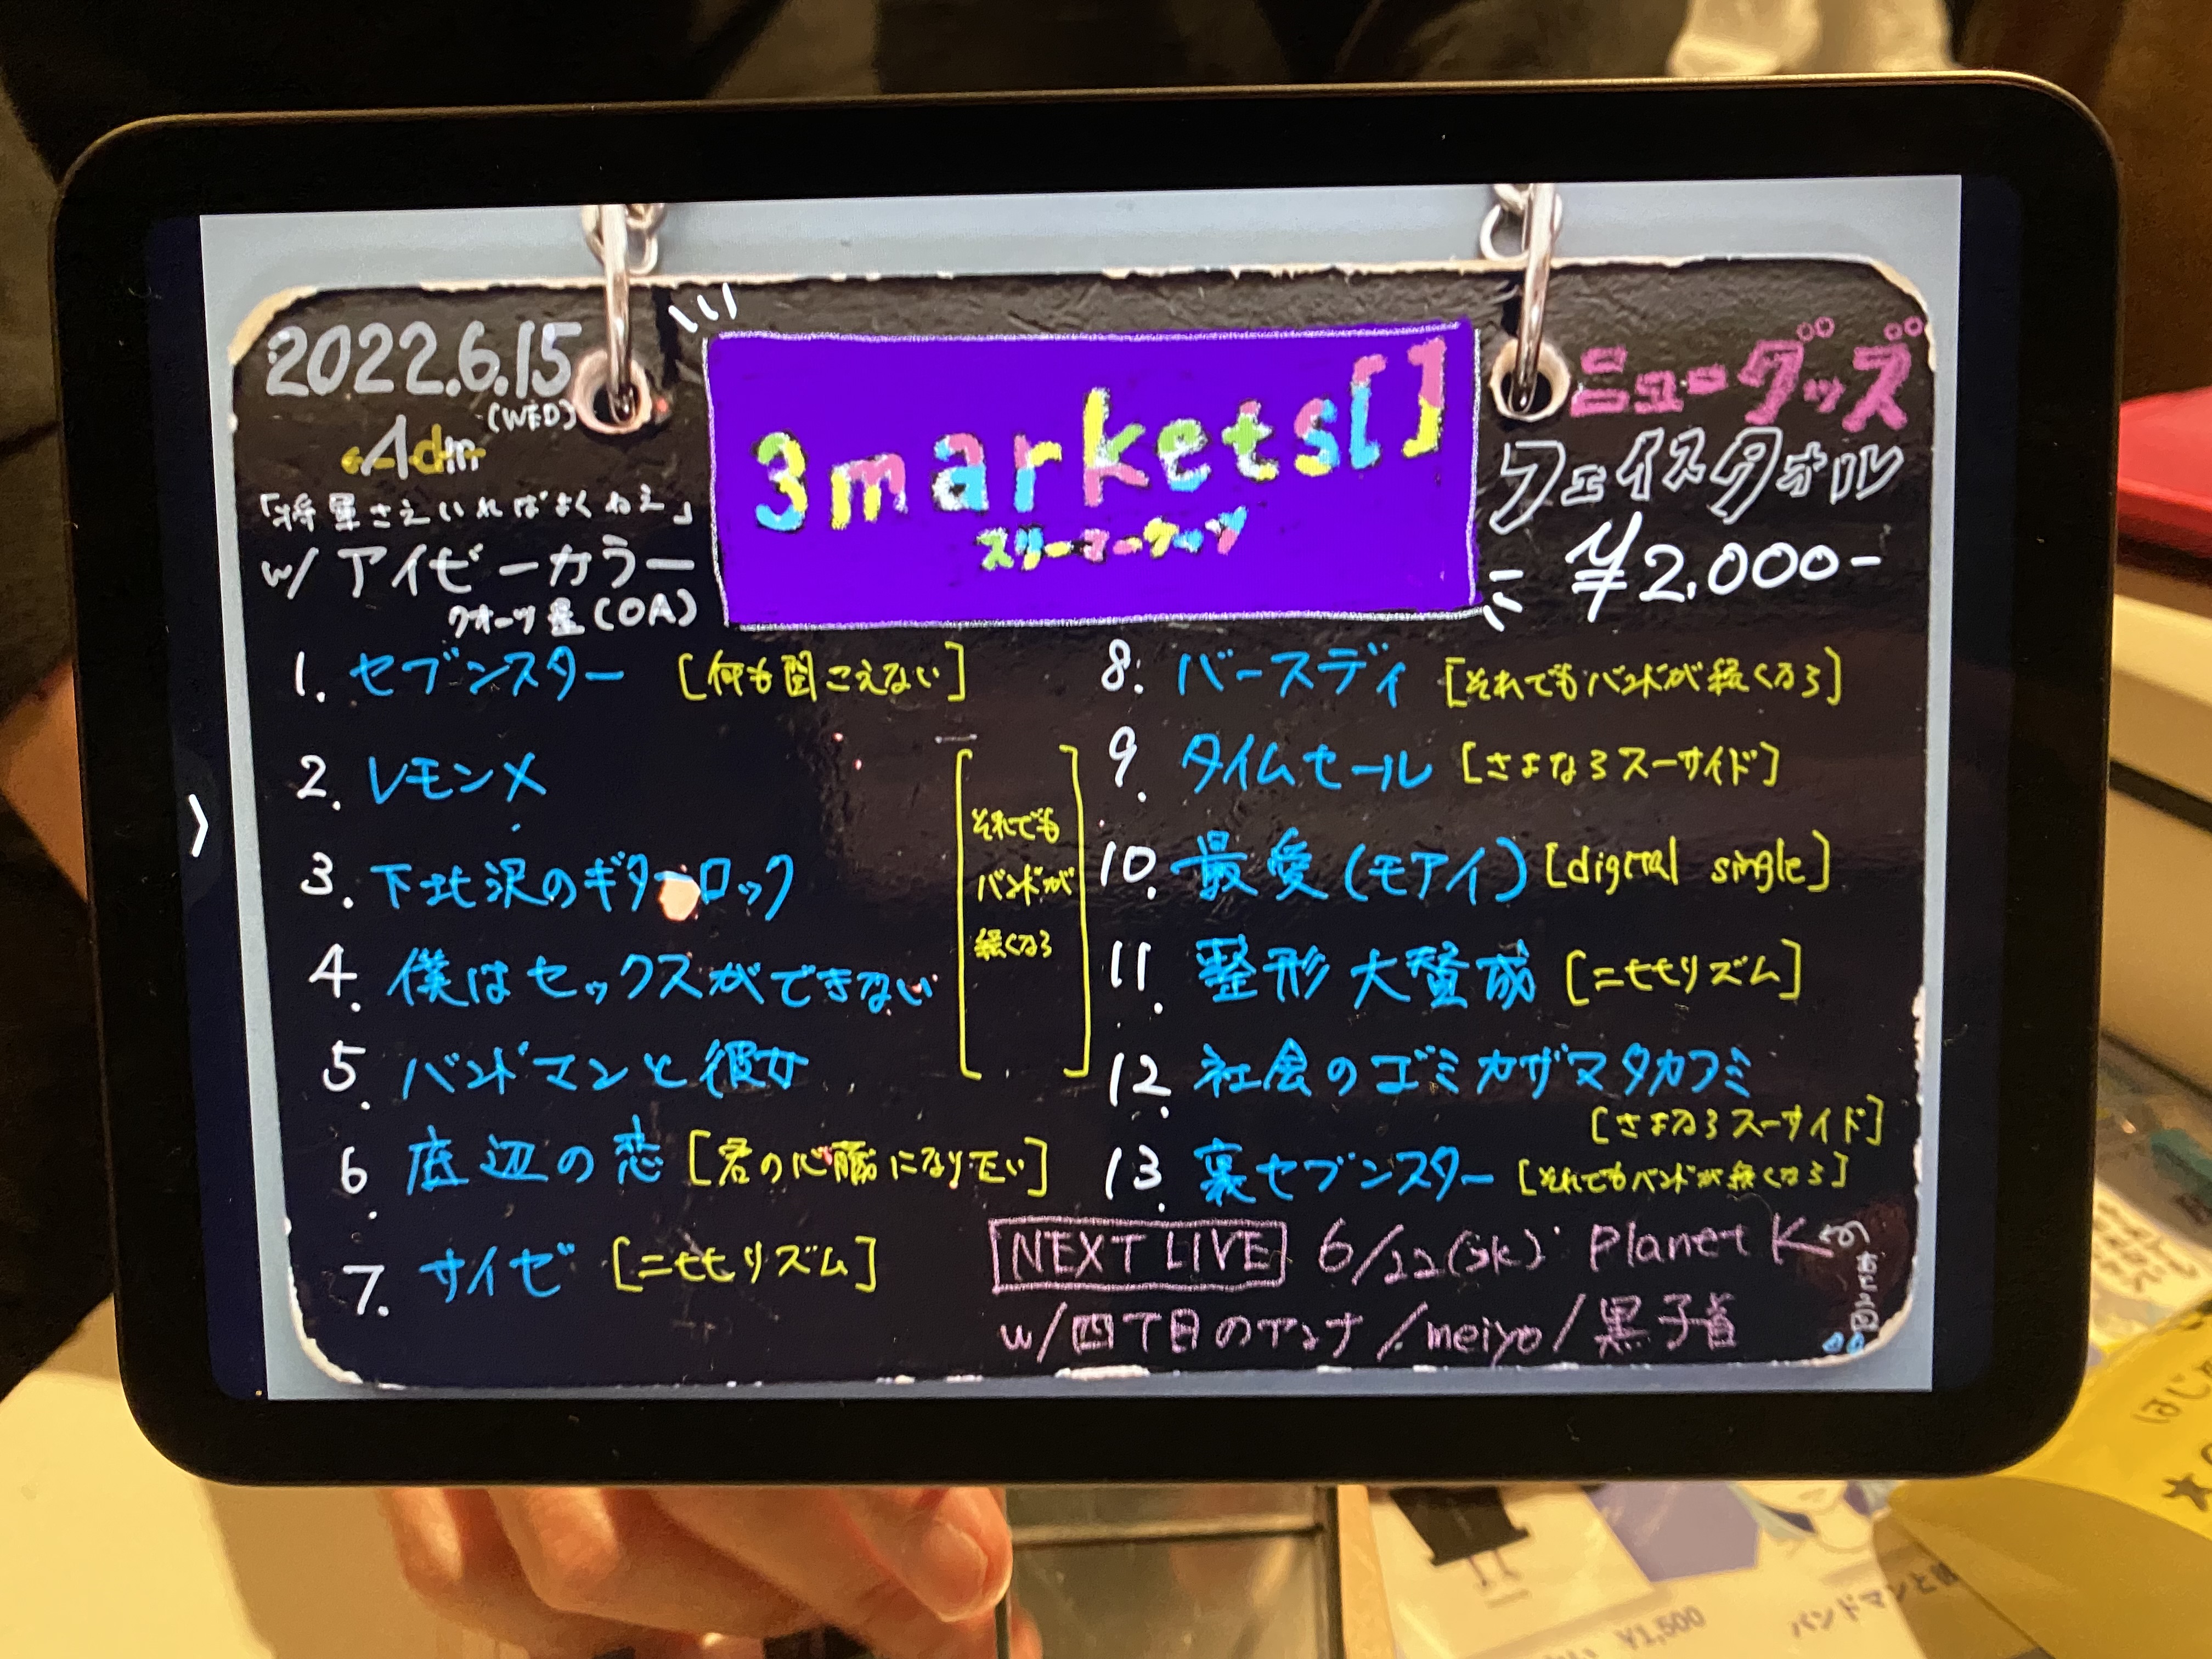 2022.6.15
(WED)
「将軍さえいればよくねえ」
w/ アイビーカラー
クオーツ星(OA)
3markets[]
スリーマーケッツ
ニューグッズ
フェイスタオル
¥2,000-
1. セブンスター [何も聞こえない]
2. レモン×
3. 下北沢のギターロック
4. 僕はセックスができない
5. バンドマンと彼女
[それでも
バンドが
続くなら]
6. 底辺の恋 [君の心臓になりたい]
7. サイゼ [ニセモリズム]
8. バースデイ [それでもバンドが続くなら]
9. タイムセール [さよならスーサイド]
10. 最愛(モアイ) [digital single]
11. 整形大賛成 [ニセモリズム]
12. 社会のゴミカザマタカフミ
[さよならスーサイド]
13. 裏セブンスター [それでもバンドが続くなら]
NEXT LIVE 6/22(水) Planet K
w/四丁目のアンナ/meiyo/黒子首
¥1,500
バンドマンと